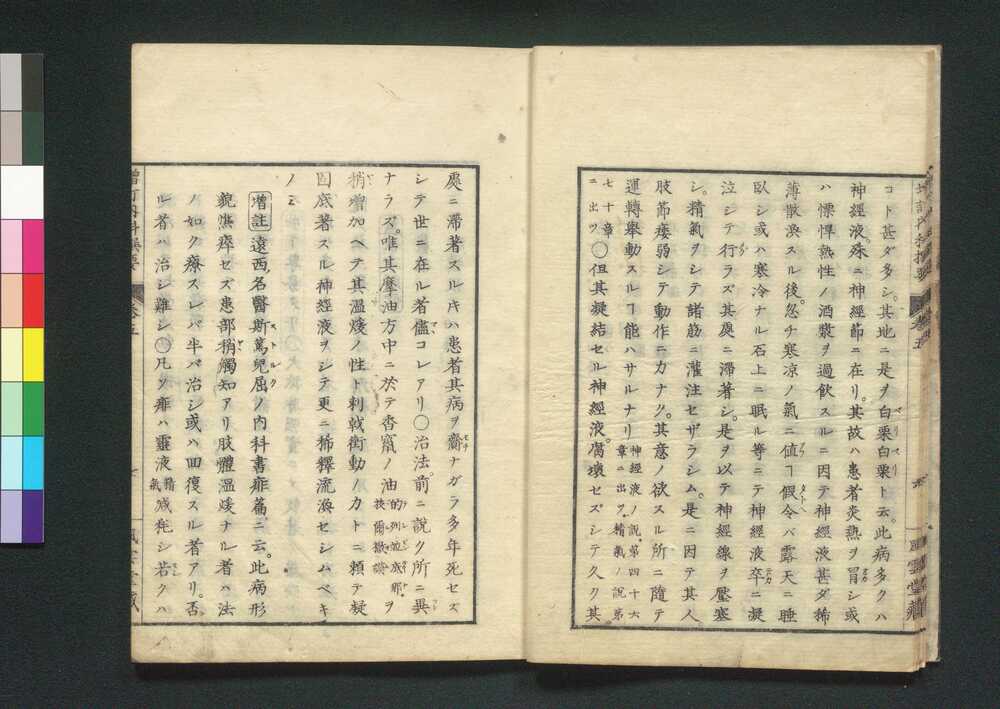 コト甚ダ多シ。其地ニ是ヲ白栗白栗ト云。此病多クハ
神經液。殊ニ神經節ニ在リ。其故ハ患者炎熱ヲ冒シ或
ハ慓悍熟性ノ酒漿ヲ過飲スルニ因テ神經液甚ダ稀
薄散渙スル後。忽チ寒凉ノ氣ニ値ヒ假令バ露天ニ睡
臥シ或ハ寒冷ナル石上ニ眠ル等ニテ神經液卒ニ凝
泣シテ行ラズ其處ニ滯著シ。是ヲ以テ神經線ヲ壓塞
シ。精氣ヲシテ諸筋ニ灌注セザラシム。是ニ因テ其人
肢節痿弱シテ動作ニ力ナク。其意ノ欲スル所ニ隨テ
運轉擧動スルヿ能ハザルナリ 神經液ノ説。第四十六
章ニ出ヅ。精氣ノ説第
七十章
ニ出ヅ〇但其凝結セル神經液。腐壞セズシテ久ク其
處ニ滯著スルキハ患者其病ヲ齎ナガラ多年死セズ
シテ世ニ在ル者儘コレアリ〇治法。前ニ説ク所ニ異
ナラズ。唯其摩油方中ニ於テ杳竄ノ油
稍増加ヘテ其溫煖ノ性ト刺戟衝動ノ力トニ頼テ凝
固底著スル神經液ヲシテ更ニ稀釋流渙セシムベキ
ノミ
増註 遠西名醫斯篤兒屈ノ內科書痱篇ニ云。此病形
貌憔瘁セズ患部稍觸知アリ肢體溫煖ナル者ハ法
ノ如ク療スレバ半バ治シ或ハ囬復スル者アリ。否
ル者ハ治シ難シ〇凡ソ痱ハ靈液精氣減耗シ若クハ